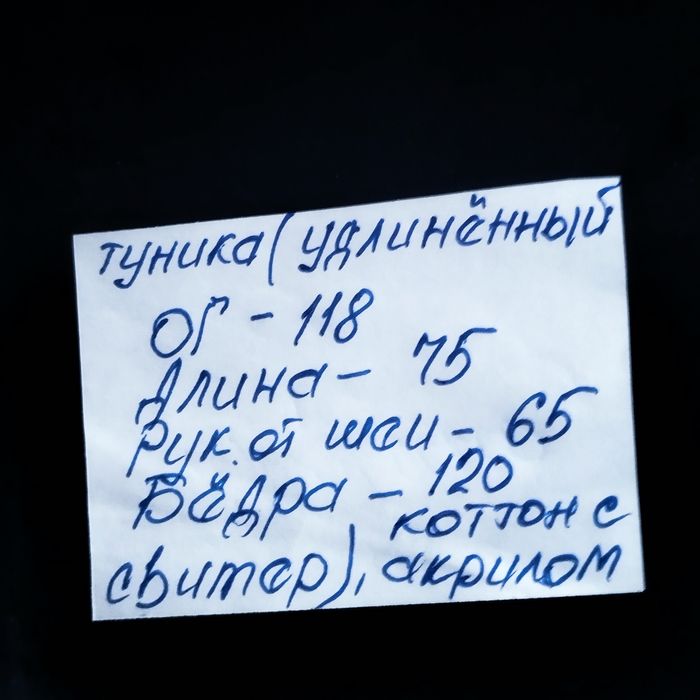 туника (удлинённый
ОГ - 118
Длина - 75
Рук. от шеи - 65
Бёдра - 120
коттон с
свитер), акрилом